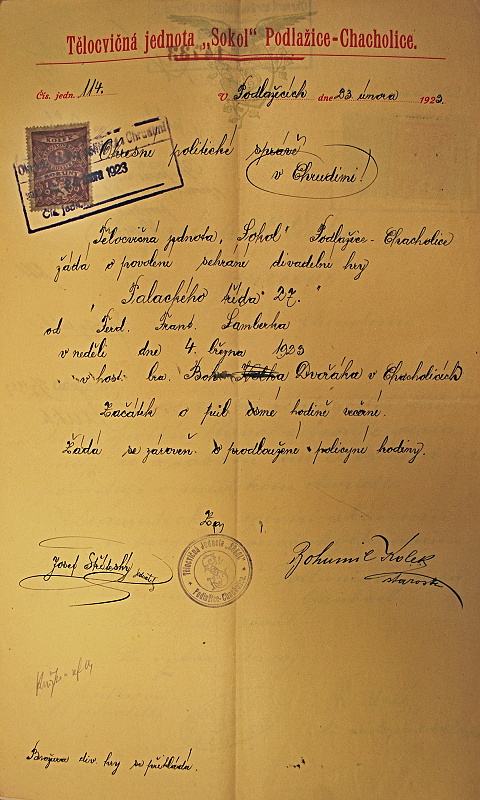 Tělocvičná jednota „Sokol" Podlažice-Chacholice.
Čís. jedn. 114.
V Podlažicích dne 23. února 1923.
Okresní politické správě
v Chrudimi!
února 1923
Čís. jedn.
Tělocvičná jednota „Sokol" Podlažice-Chacholice
žádá o povolení sehrání divadelní hry
„Palackého třída 27."
od Ferd. Frant. Šamberka
v neděli dne 4. března 1923
v host. bra. Dvořáka v Chacholicích
Začátek o půl osmé hodině večerní.
Žádá se zároveň o prodloužení policejní hodiny.
Za
Josef
Bohumil Kolek
starosta
Tělocvičná jednota „Sokol"
Podlažice-Chacholice
Brožura div. hry se přikládá.